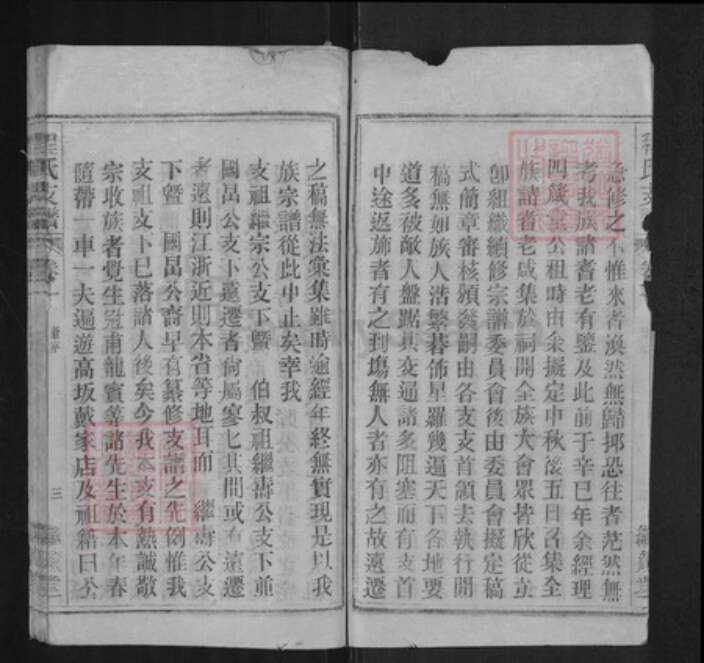 急修之不惟來者渙然無歸抑恐往者茫然無
考我族諸耆老有鑒及此前于辛巳年余經理
四歲堂公租時由余擬定中秋後五日召集全
族諸耆老咸集於祠開全族大會眾皆欣從立
卽組織續修宗譜委員會後由委員會擬定稿
式簡章審核頒發嗣由各支支首領去執行開
稿無如族人浩繁碁佈星羅幾遍天下各地要
道多被敵人盤踞其交通諸多阻塞而有支首
中途返旆者有之到塲無人者亦有之故遠遷
之稿無法彙集雖時逾經年終無實現是以我
族宗譜從此中止矣幸我
支祖繼宗公支下暨 伯叔祖繼壽公支下並
國昌公支下遠遷者尙屬寥匕其間或有遠遷
者遠則江浙近則本省等地耳而 繼壽公支
下暨 國昌公裔早有纂修支譜之先例惟我
支祖支下已落諸人後矣今我本支有熱誠敬
宗收族者覺生冠甫龍賓等諸先生於本年春
隨帶一車一夫遍遊高坂戴家店及祖籍曰公
程氏支譜 卷一
三